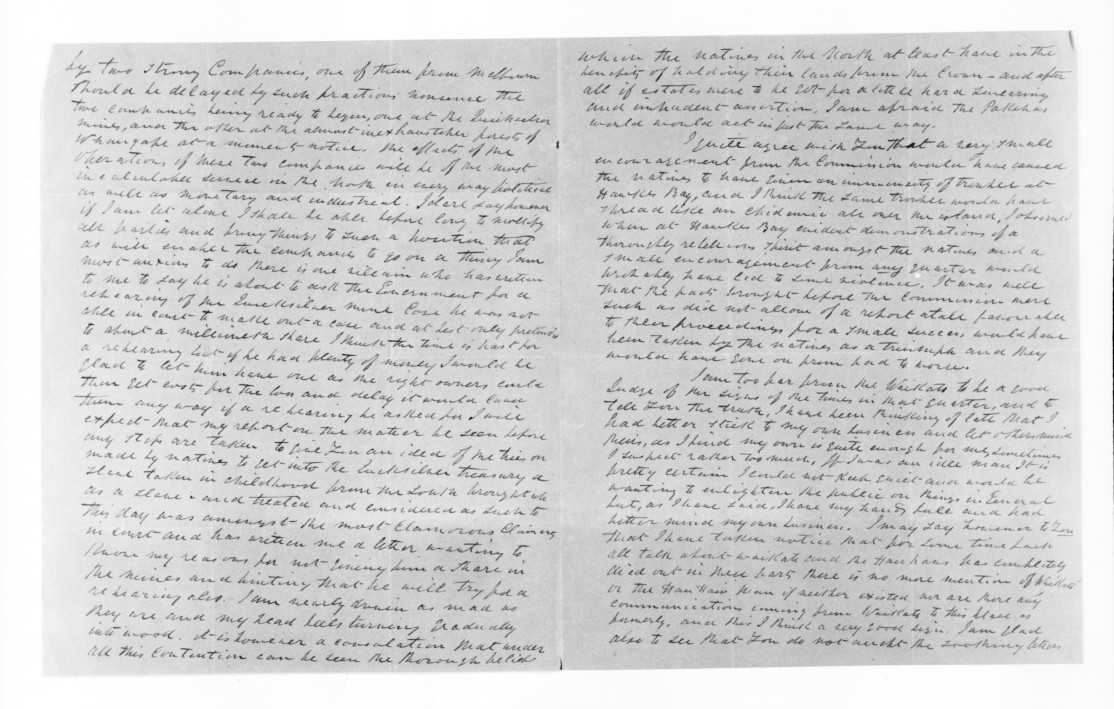 by two strong Companies, one of them from Melbourn
should be delayed by such fractious nonsense the
two companies being ready to begin, one at the Quicksilver
mines, and the other at the almost inexhaustible forests of
Whangape at a moments notice. The effects of the
operations of these two companies will be of the most
incalculable service in the North in every way political
as well as monetary and industrial. I dare say however
if I am let alone I shall be able before long to mollify
all parties and bring things to such a position that
as will enable the companys to go on a thing I am
most anxious to do there is one villain who has written
to me to say he is about to ask the Government for a
rehearing of the Quicksilver mine Case he was not
able in court to make out a case and at best only pretended
to about a millioneth share I think the time is past for
a rehearing but if he had plenty of money I would be
glad to let him have one as the right owners could
then get costs for the loss and delay it would cause
them any way if a rehearing be asked for I will
expect that my report on the matter be seen before
any steps are taken. to give You an idea of the tries on
made by natives to get into the Quicksilver treasury a
slave taken in childhood from the South brought up
as a slave - and treated and considered as such to
this day was amongst the most Clamorous Claimers
in court and has written me a letter wanting to
know my reasons for not giving him a share in
the mines and hinting that he will try for a
rehearing also. I am nearly driven as mad as
they are and my head feels turning gradually
into wood. it is however a consolation that under
all this Contention can be seen the thorough belief
which the natives in the North at least have in the
benefits of holding their lands from the Crown - and after
all if estates were to be got for a little hard swearing
and impudent assertion, I am afraid the Pakehas
world would act in just the same way.
I quite agree with You that a very small
encouragement from the Commission would have caused
the natives to have given an immensity of trouble at
Hawkes Bay, and I think the same trouble would have
spread like an epidemic all over the island, I observed
when at Hawkes Bay evident demonstrations of a
thoroughly rebellious spirit amongst the natives and a
small encouragement from any quarter would
probably have led to some violence. It was well
that the facts brought before the Commission were
such as did not allow of a report atall favorable
to their proceedings for a small success would have
been taken by the natives as a triumph and they
would have gone on from bad to worse.
I am too far from the Waikato to be a good
Judge of the signs of the times in that quarter, and to
tell You the truth, I have been thinking of late that I
had better stick to my own business and let others mind
theirs, as I find my own is quite enough for me, sometimes
I suspect rather too much. If I was an idle man It is
pretty certain I could not keep quiet and would be
wanting to enlighten the public on things in General
but, as I have said, I have my hands full and had
better mind my own business. I may say however to You
that I have taken notice that for some time back
all talk about Waikato and the Hauhaus has completely
died out in these parts there is no more mention of Waikato
or the Hau Haus than if neither existed nor are there any
communications coming from Waikato to this place as
formerly, and this I think a very good sign. I am glad
also to see that You do not the soothing letters